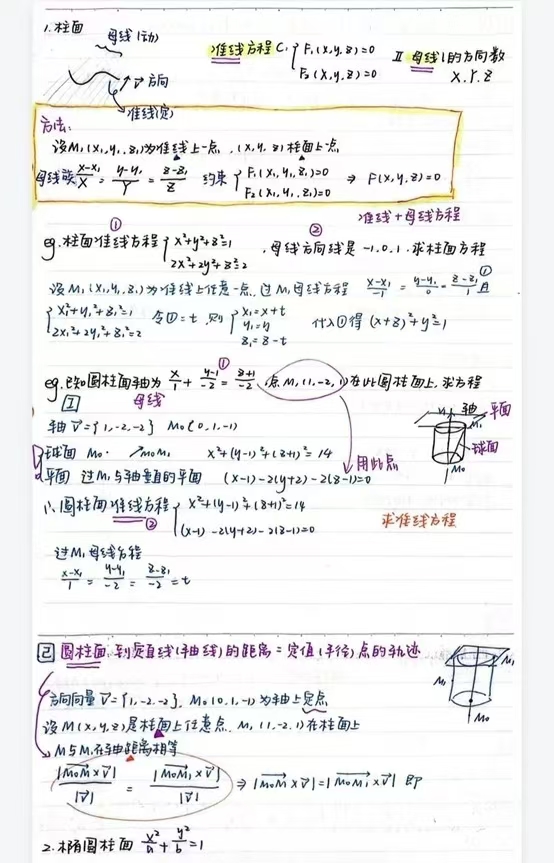 1. 柱面
母线(动)
准线方程 C: { F₁(x,y,z)=0
F₂(x,y,z)=0
Ⅱ 母线l的方向数
X.Y.Z
↑ v 方向
准线(定)
方法:
设M₁(x₁,y₁,z₁)为准线上一点, (x,y,z)柱面上一点
母线 (x-x₁)/X = (y-y₁)/Y = (z-z₁)/Z 约束 { F₁(x₁,y₁,z₁)=0
F₂(x₁,y₁,z₁)=0 ⇒ F(x,y,z)=0
准线+母线方程
① ②
eg. 柱面准线方程 { x²+y²+z²=1
2x²+2y²+z²=2 , 母线方向线是 -1.0.1. 求柱面方程
设M₁(x₁,y₁,z₁)为准线上任意一点. 过M₁母线方程 (x-x₁)/-1 = (y-y₁)/0 = (z-z₁)/1 ① 且
{ x₁²+y₁²+z₁²=1
2x₁²+2y₁²+z₁²=2 令①=t, 则 { x₁=x+t
y₁=y
z₁=z-t 代入①得 (x+z)²+y²=1
eg. 已知圆柱面轴为 x/1 = (y-1)/-2 = (z+1)/-2 ① , 点M₁(1,-2,1)在此圆柱面上, 求方程
母线
1
轴 v={1,-2,-2} M₀(0,1,-1)
球面 M₀. M₀M₁ x²+(y-1)²+(z+1)²=14
用此点
平面 过M₁与轴垂直的平面 (x-1)-2(y+2)-2(z-1)=0
轴 平面
M₁
球面
M₀
圆柱面准线方程 ② { x²+(y-1)²+(z+1)²=14
(x-1)-2(y+2)-2(z-1)=0
求准线方程
过M₁母线方程
(x-x₁)/1 = (y-y₁)/-2 = (z-z₁)/-2 = t
2 圆柱面, 到定直线(轴线)的距离=定值(半径)点的轨迹
方向向量 v={1,-2,-2}, M₀(0,1,-1)为轴上定点
设M(x,y,z)是柱面上任意点. M₁(1,-2,1)在柱面上
M与M₁在轴距离相等
|M₀M×v|/|v| = |M₀M₁×v|/|v| ⇒ |M₀M×v|=|M₀M₁×v| 即
M₁
M₁
M₀
2. 椭圆柱面 x²/a + y²/b = 1